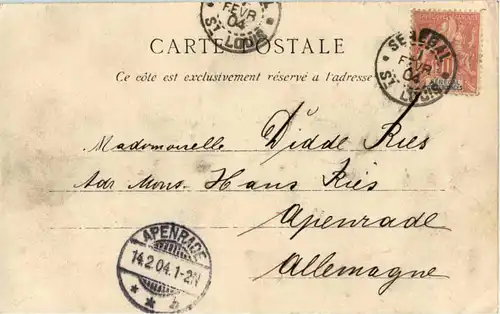 FEVR
04
ST LOUIS
CARTE POSTALE
SÉNÉGAL
FEVR
04
ST LOUIS
Ce côte est exclusivement réservé a l'adresse
Mademoiselle Didde Ries
Adr Mons. Hans Ries
Apenrade
Allemagne
APENRADE
14.2.04.1-2N
* * b